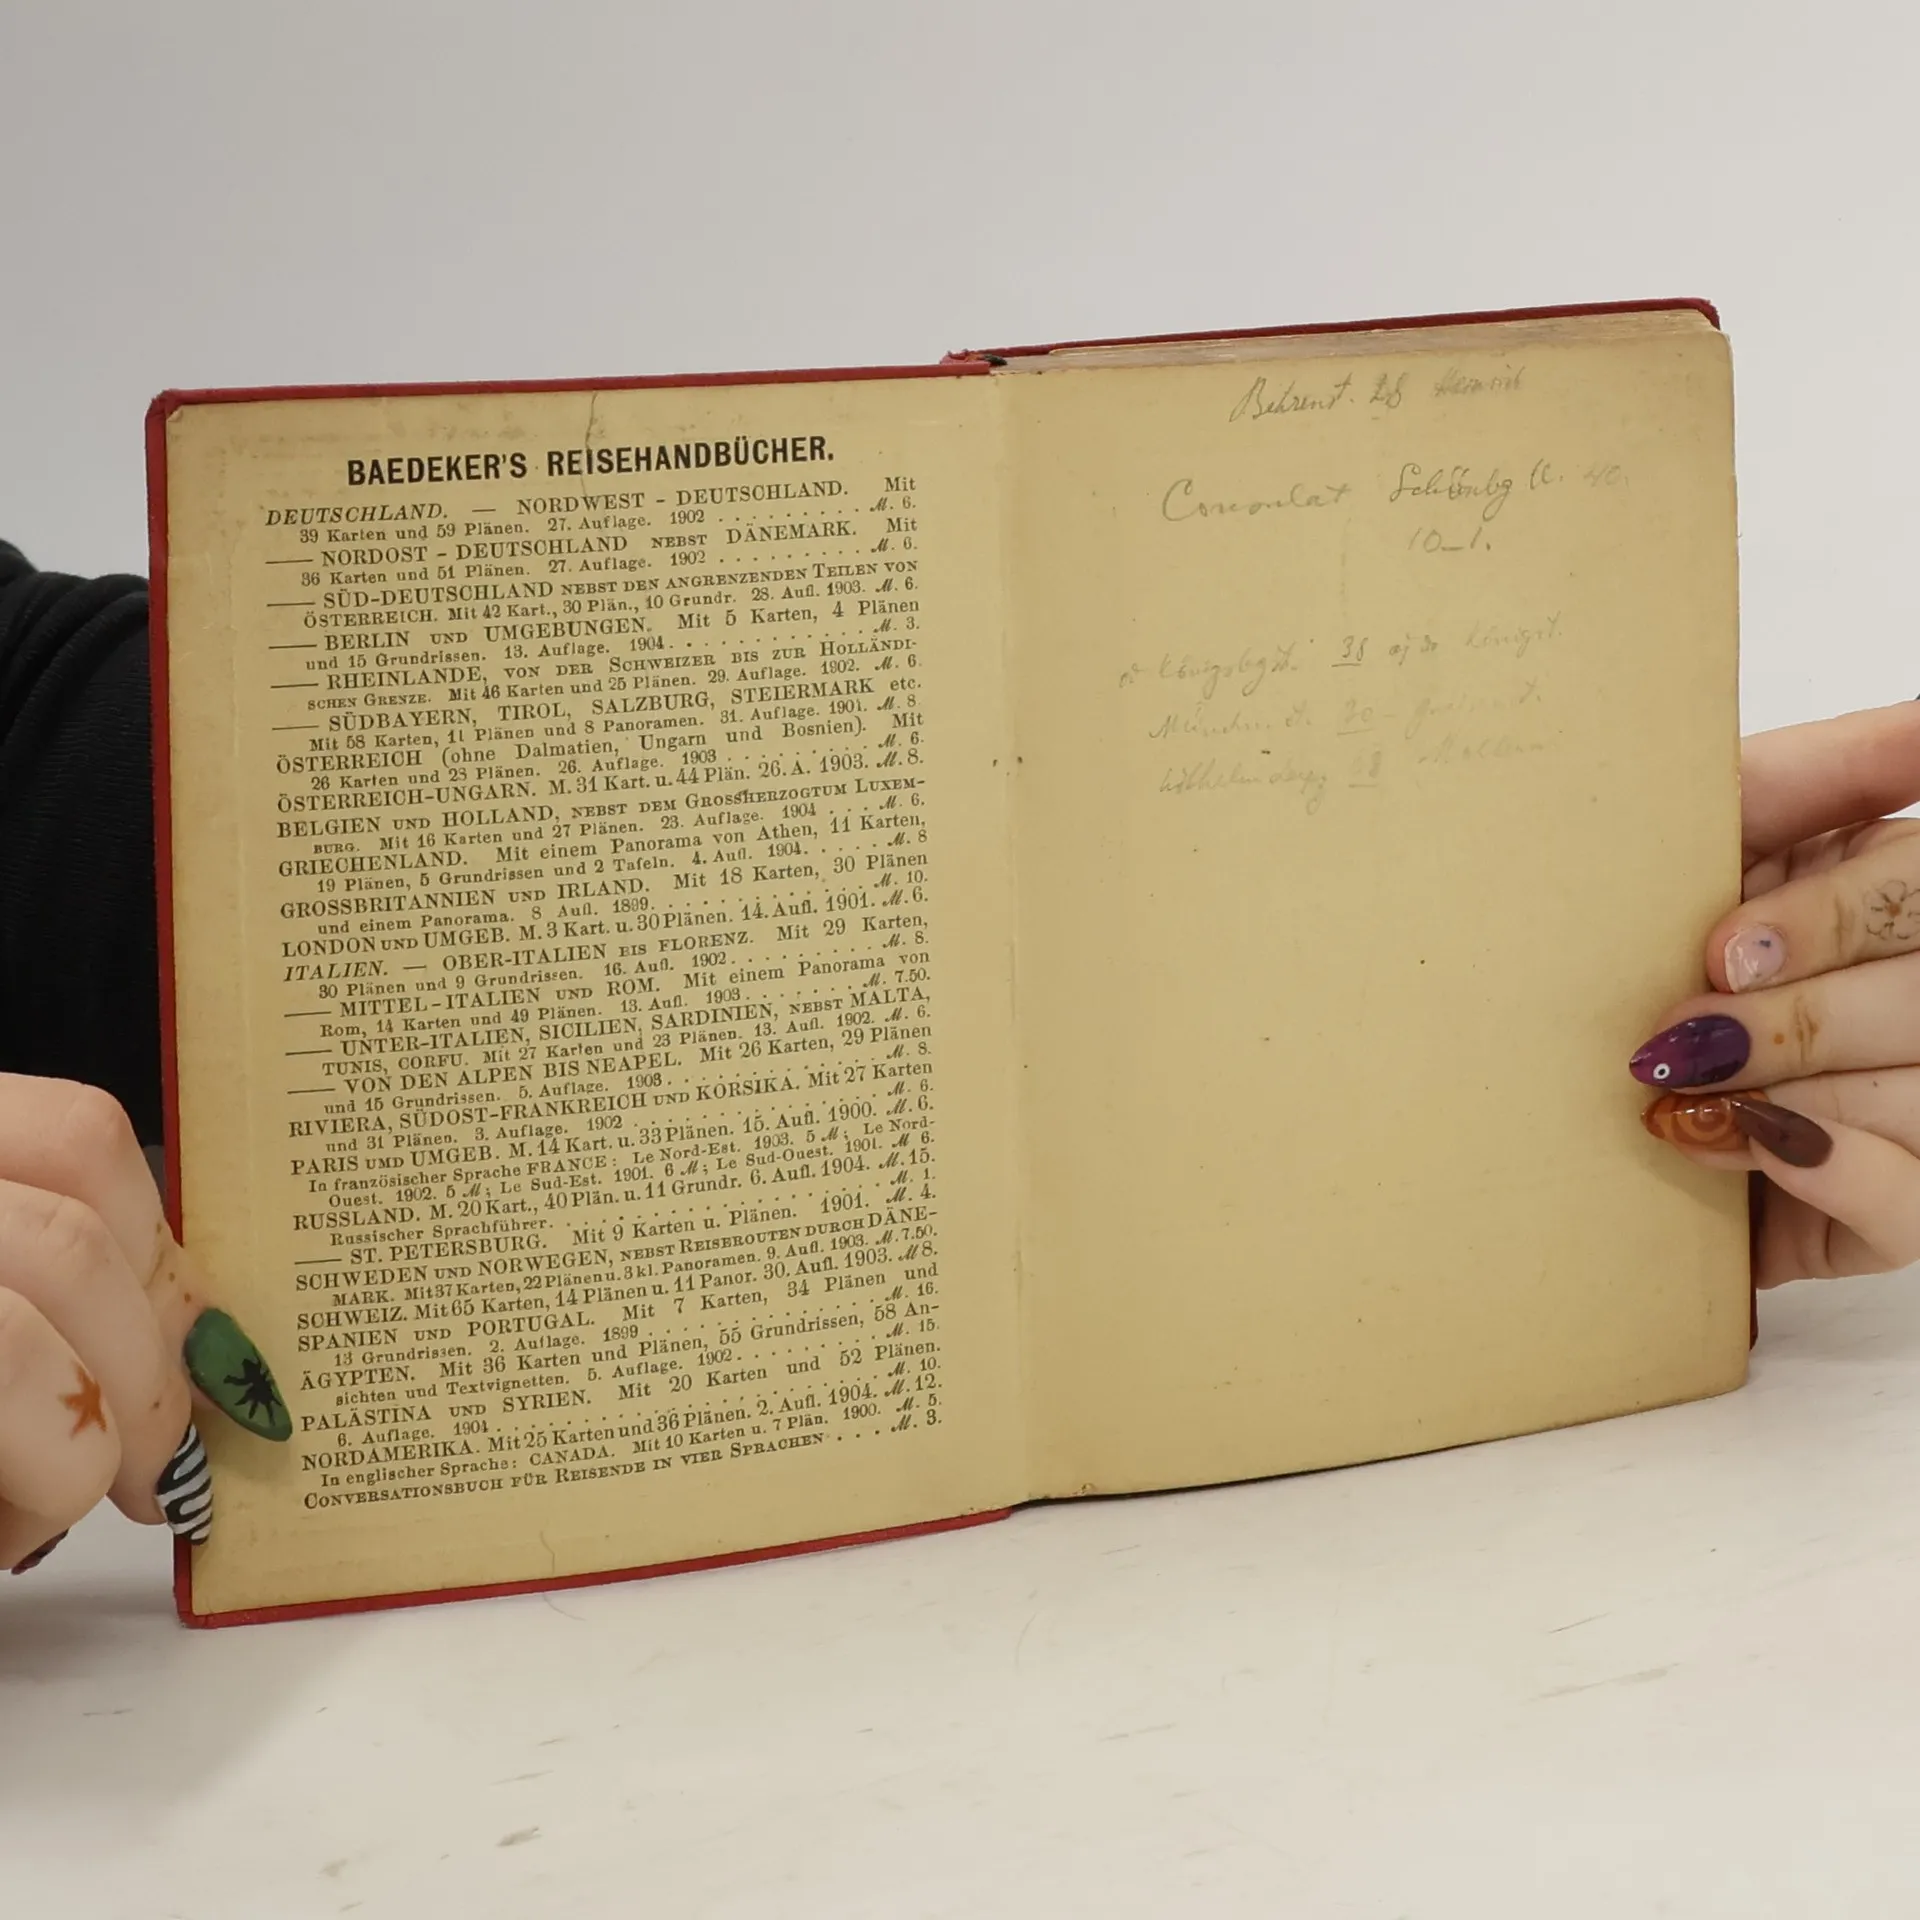 BAEDEKER'S REISEHANDBÜCHER.
DEUTSCHLAND. — NORDWEST - DEUTSCHLAND. Mit
39 Karten und 59 Plänen. 27. Auflage. 1902 . . . . . . . . . ℳ. 6.
—— NORDOST - DEUTSCHLAND NEBST DÄNEMARK. Mit
36 Karten und 51 Plänen. 27. Auflage. 1902 . . . . . . . . . ℳ. 6.
—— SÜD-DEUTSCHLAND NEBST DEN ANGRENZENDEN TEILEN VON
ÖSTERREICH. Mit 42 Kart., 30 Plän., 10 Grundr. 28. Aufl. 1903. ℳ. 6.
—— BERLIN UND UMGEBUNGEN. Mit 5 Karten, 4 Plänen
und 15 Grundrissen. 13. Auflage. 1904 . . . . . . . . . . . ℳ. 3.
—— RHEINLANDE, VON DER SCHWEIZER BIS ZUR HOLLÄNDI-
SCHEN GRENZE. Mit 46 Karten und 25 Plänen. 29. Auflage. 1902. ℳ. 6.
—— SÜDBAYERN, TIROL, SALZBURG, STEIERMARK etc.
Mit 58 Karten, 11 Plänen und 8 Panoramen. 31. Auflage. 1901. ℳ. 8.
ÖSTERREICH (ohne Dalmatien, Ungarn und Bosnien). Mit
26 Karten und 23 Plänen. 26. Auflage. 1903 . . . . . . . . ℳ. 6.
ÖSTERREICH-UNGARN. M. 31 Kart. u. 44 Plän. 26. A. 1903. ℳ. 8.
BELGIEN UND HOLLAND, NEBST DEM GROSSHERZOGTUM LUXEM-
BURG. Mit 16 Karten und 27 Plänen. 23. Auflage. 1904 . . . ℳ. 6.
GRIECHENLAND. Mit einem Panorama von Athen, 11 Karten,
19 Plänen, 5 Grundrissen und 2 Tafeln. 4. Aufl. 1904. . . . . ℳ. 8
GROSSBRITANNIEN UND IRLAND. Mit 18 Karten, 30 Plänen
und einem Panorama. 8 Aufl. 1899. . . . . . . . . . . . ℳ. 10.
LONDON UND UMGEB. M. 3 Kart. u. 30 Plänen. 14. Aufl. 1901. ℳ. 6.
ITALIEN. — OBER-ITALIEN BIS FLORENZ. Mit 29 Karten,
30 Plänen und 9 Grundrissen. 16. Aufl. 1902. . . . . . . . . ℳ. 8.
—— MITTEL-ITALIEN UND ROM. Mit einem Panorama von
Rom, 14 Karten und 49 Plänen. 13. Aufl. 1903. . . . . . . ℳ. 7.50.
—— UNTER-ITALIEN, SICILIEN, SARDINIEN, NEBST MALTA,
TUNIS, CORFU. Mit 27 Karten und 23 Plänen. 13. Aufl. 1902. ℳ. 6.
—— VON DEN ALPEN BIS NEAPEL. Mit 26 Karten, 29 Plänen
und 15 Grundrissen. 5. Auflage. 1903. . . . . . . . . . . . ℳ. 8.
RIVIERA, SÜDOST-FRANKREICH UND KORSIKA. Mit 27 Karten
und 31 Plänen. 3. Auflage. 1902 . . . . . . . . . . . . . ℳ. 6.
PARIS UMD UMGEB. M. 14 Kart. u. 33 Plänen. 15. Aufl. 1900. ℳ. 6.
In französischer Sprache FRANCE: Le Nord-Est. 1903. 5 ℳ; Le Nord-
Ouest. 1902. 5 ℳ; Le Sud-Est. 1901. 6 ℳ; Le Sud-Ouest. 1901. ℳ 6.
RUSSLAND. M. 20 Kart., 40 Plän. u. 11 Grundr. 6. Aufl. 1904. ℳ. 15.
Russischer Sprachführer. . . . . . . . . . . . . . . . . ℳ. 1.
—— ST. PETERSBURG. Mit 9 Karten u. Plänen. 1901. ℳ. 4.
SCHWEDEN UND NORWEGEN, NEBST REISEROUTEN DURCH DÄNE-
MARK. Mit 37 Karten, 22 Plänen u. 3 kl. Panoramen. 9. Aufl. 1903. ℳ. 7.50.
SCHWEIZ. Mit 65 Karten, 14 Plänen u. 11 Panor. 30. Aufl. 1903. ℳ 8.
SPANIEN UND PORTUGAL. Mit 7 Karten, 34 Plänen und
13 Grundrissen. 2. Auflage. 1899 . . . . . . . . . . . . . ℳ. 16.
ÄGYPTEN. Mit 36 Karten und Plänen, 55 Grundrissen, 58 An-
sichten und Textvignetten. 5. Auflage. 1902. . . . . . . . . ℳ. 15.
PALÄSTINA UND SYRIEN. Mit 20 Karten und 52 Plänen.
6. Auflage. 1904 . . . . . . . . . . . . . . . . . . . . ℳ. 10.
NORDAMERIKA. Mit 25 Karten und 36 Plänen. 2. Aufl. 1904. ℳ. 12.
In englischer Sprache: CANADA. Mit 10 Karten u. 7 Plän. 1900. ℳ. 5.
CONVERSATIONSBUCH FÜR REISENDE IN VIER SPRACHEN . . . . ℳ. 3.
Behrenst. 28
Consulat Schönbg 40.
10–1.
Königsbgst. 38
30